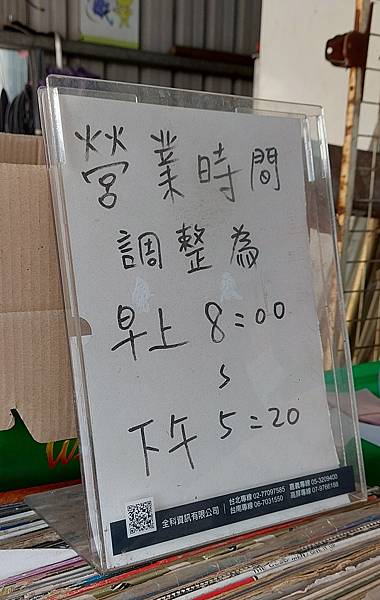 營業時間
調整為
早上 8:00
~
下午 5:20
全科資訊有限公司
台北專線 02-77097585 嘉義專線 05-3209400
台南專線 06-7031550 高屏專線 07-9766188